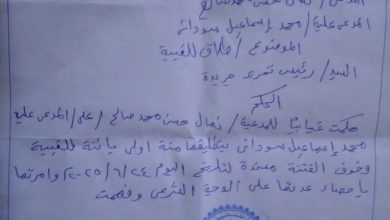 المدعية/ نهال حسن محمد صالح
المدعى عليه/ محمد إسماعيل سوداني
الموضوع / طلاق للغيبة
السيد/ رئيس تحرير جريدة
الحكم
حكمت غيابياً للمدعية/ نهال حسن محمد صالح /على/ المدعى عليه
محمد إسماعيل سوداني بتطليقها منه أولى بائنة للغيبة
وخوف الفتنة مسندة لتاريخ اليوم ٢٠٢٥/٦/٢٤ وأمرتها
بإحصاء عدتها على الوجه الشرعي وفهمت